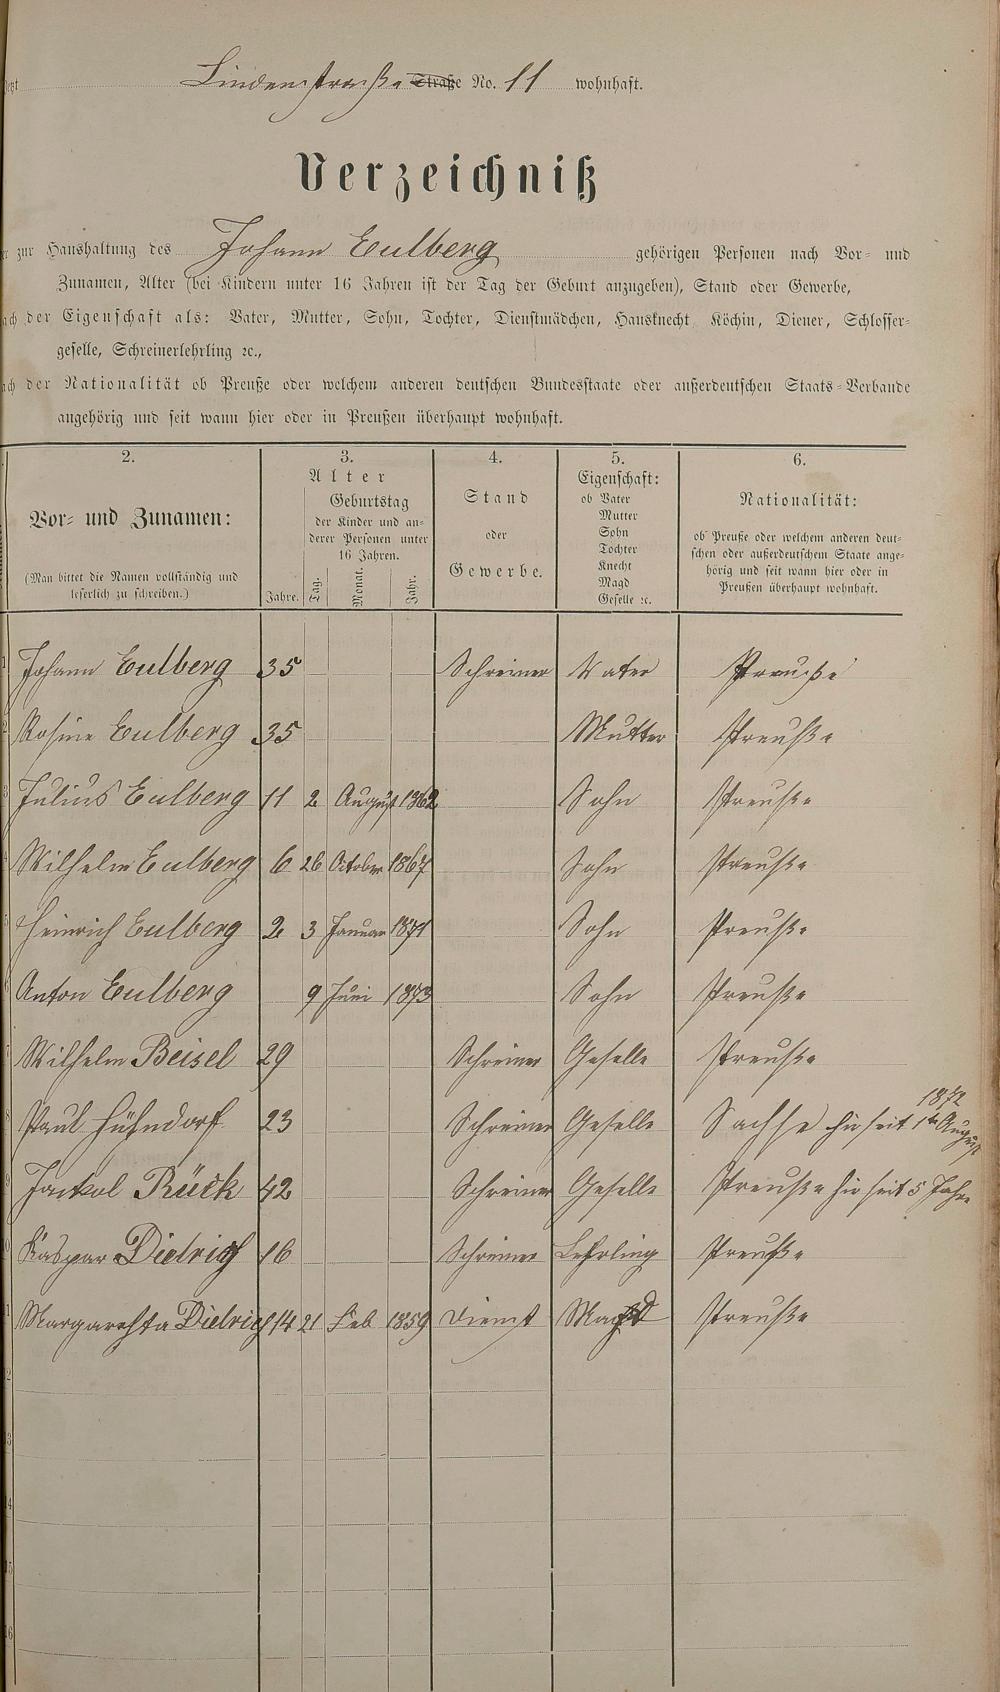 Jetzt Lindenstraße Straße No. 11 wohnhaft.
Verzeichniß
der zur Haushaltung des Johann Eulberg gehörigen Personen nach Vor- und
Zunamen, Alter (bei Kindern unter 16 Jahren ist der Tag der Geburt anzugeben), Stand oder Gewerbe,
nach der Eigenschaft als: Vater, Mutter, Sohn, Tochter, Dienstmädchen, Hausknecht Köchin, Diener, Schlosser-
geselle, Schreinerlehrling ꝛc.,
nach der Nationalität ob Preuße oder welchem anderen deutschen Bundesstaate oder außerdeutschen Staats-Verbande
angehörig und seit wann hier oder in Preußen überhaupt wohnhaft.
2. 3. 4. 5. 6.
Vor- und Zunamen:
(Man bittet die Namen vollständig und
leserlich zu schreiben.)
Alter
Jahre.
Geburtstag
der Kinder und an-
derer Personen unter
16 Jahren.
Tag. Monat. Jahr.
Stand
oder
Gewerbe.
Eigenschaft:
ob Vater
Mutter
Sohn
Tochter
Knecht
Magd
Geselle ꝛc.
Nationalität:
ob Preuße oder welchem anderen deut-
schen oder außerdeutschem Staate ange-
hörig und seit wann hier oder in
Preußen überhaupt wohnhaft.
1 Johann Eulberg 35 Schreiner Vater Preuße
2 Rosine Eulberg 35 Mutter Preuße
3 Julius Eulberg 11 2 August 1862 Sohn Preuße
4 Wilhelm Eulberg 6 26 October 1867 Sohn Preuße
5 Heinrich Eulberg 2 3 Januar 1871 Sohn Preuße
6 Anton Eulberg 9 Juni 1873 Sohn Preuße
7 Wilhelm Beisel 29 Schreiner Geselle Preuße
1872
8 Paul Hühndorf 23 Schreiner Geselle Sachse hir seit 1ten August
9 Rück 42 Schreiner Geselle Preuße hir seit 5 Jahre
10 Kaspar Dietrich 16 Schreiner Lehrling Preuße
11 Margarehta Dietrich 14 21 Feb 1859 Dienst Magd Preuße
12
13
14
15
16